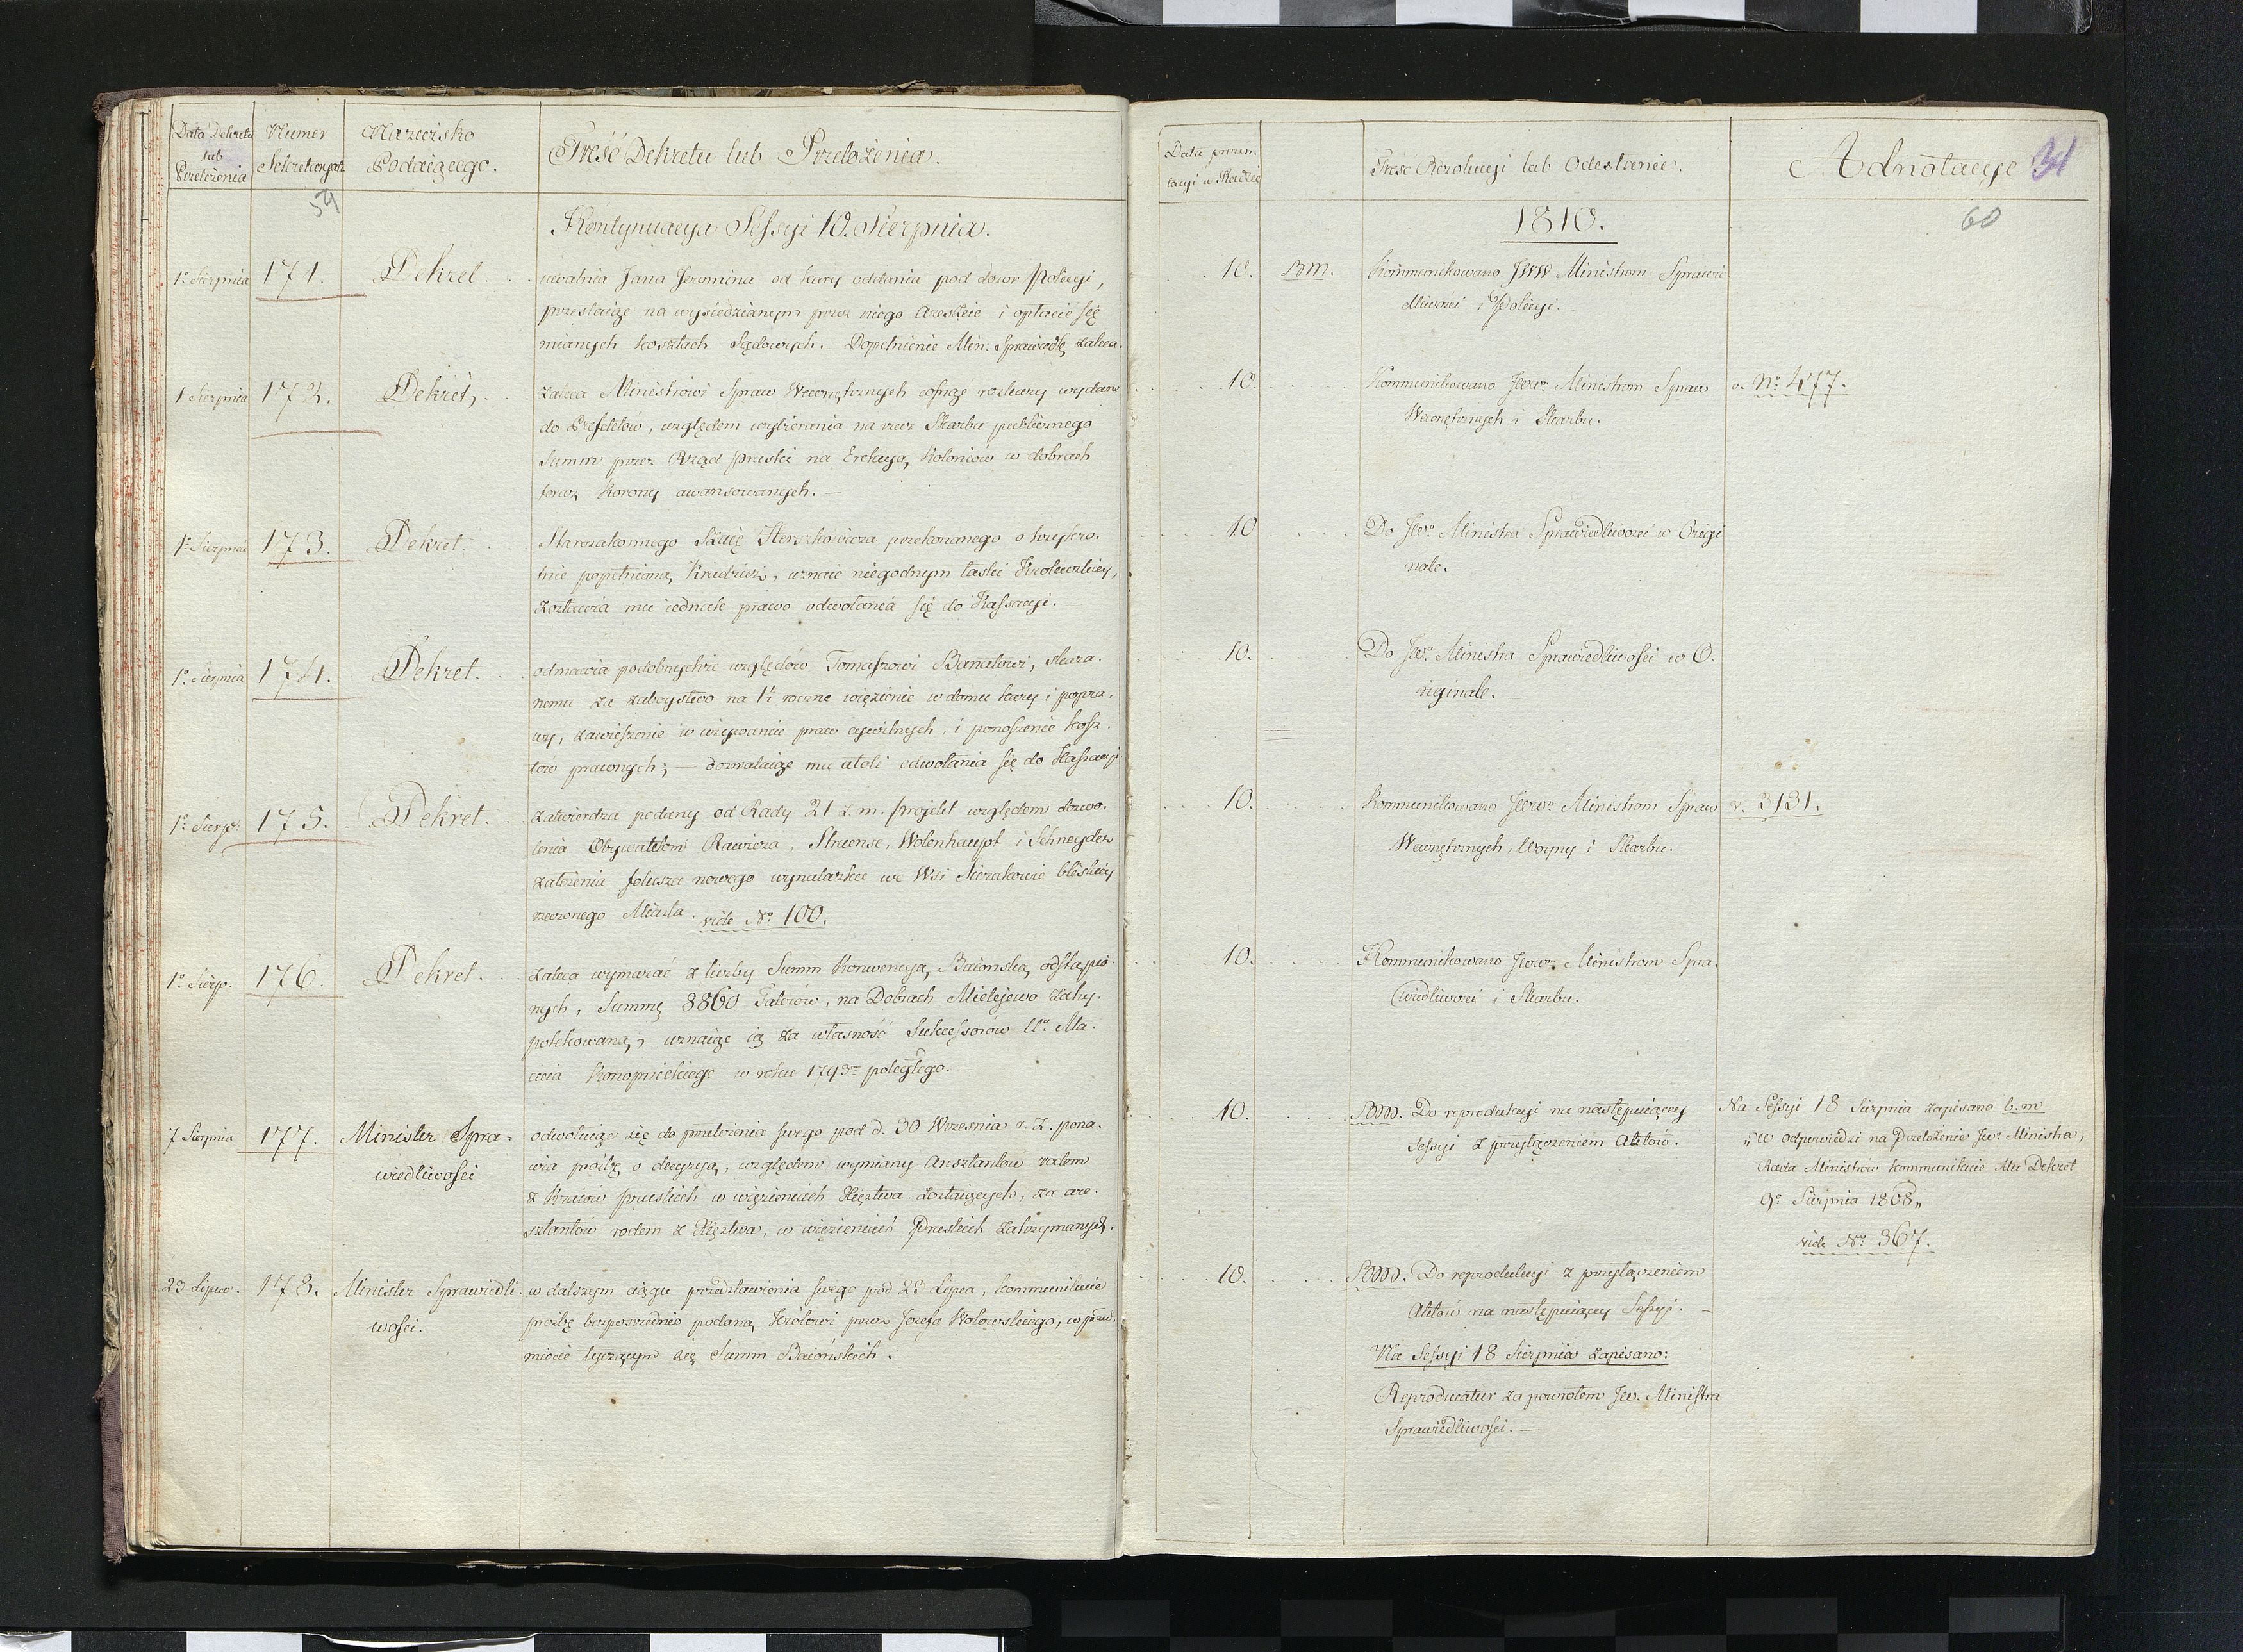 Data Dekretu
lub
Przełożenia
Numer
Sekretaryat:
59
Nazwisko
Podaiącego.
Treść Dekretu lub Przełożenia.
Kontynuacya Sessyi 10. Sierpnia.
1º Sierpnia 171. Dekret. uwalnia Jana Jeromina od kary oddania pod dozor Policyi,
przestaiąc na wysiedzianym przez niego Areszcie i opłacie się
mianych kosztach Sądowych. Dopełnienie Min. Sprawiedl. zaleca.
1 Sierpnia 172. Dekret, zaleca Ministrowi Spraw Wewnętrznych cofnąć rozkazy wydane
do Prefektów, względem wybierania na rzecz Skarbu publicznego
Summ przez Rząd pruski na Erekcyą Kolonicow w dobrach
teraz Korony awansowanych. —
1º Sierpnia 173. Dekret. Starozakonnego Herszkowicza przekonanego o trzykro-
tnie popełnioną Kradzież, uznaie niegodnym łaski Królewskiey,
zostawia mu iednak prawo odwołania się do Kassacyi.
1º Sierpnia 174. Dekret. odmawia podobnychże względów Tomaszowi Banatowi, skaza-
nemu za zaboystwo na 1½ roczne więzienie w domu kary i popra-
wy, zawieszenie w używaniu praw cywilnych, i ponoszenie kosz-
tow prawnych; — dozwalaiąc mu atoli odwołania się do Kassacyi
1º Sierp. 175. Dekret. zatwierdza podany od Rady 21 z. m. projekt względem dozwo-
lenia Obywatelom Rawicza, Struense, Wolenhaupt i Schneyder
założenia folusza nowego wynalazku we Wsi Sierakowie bliskiey
rzeczonego Miasta. vide Nº 100.
1º Sierp. 176. Dekret. zaleca wymazać z liczby Summ Konwencyą Baiońską odstąpio-
nych, Summę 8860 Talerów, na Dobrach Mielejewo zahy-
potekowaną, uznaiąc ią za własność Sukcessorów Uº Ma-
cieia Konopnickiego w roku 1793m poległego.
7 Sierpnia 177. Minister Spra-
wiedliwości
odwołuiąc się do przełożenia swego pod d. 30 Wrzesnia r. z. pona-
wia prośbę o decyzyą, względem wymiany Aresztantów rodem
z Kraiów pruskich w więzieniach Xięztwa zostaiących, za are-
sztantów rodem z Xięztwa, w więzieniach Pruskich zatrzymanych.
23 Lipca. 178. Minister Sprawiedli-
wości.
w dalszym ciągu przedstawienia swego pod 23 Lipca, kommunikuie
prośbę bezpośrednio podaną Królowi przez Jozefa Wołowskiego, w przed-
miocie tyczącym się Summ Baiońskich.
Data prezen-
tacyi w Radzie
Treść Rezolucyi lub Odesłanie.
Adnotacye 31
60
1810.
10. BM. Kommunikowano JWW Ministrom Sprawie
dliwości i Policyi. —
10. Kommunikowano JWW Ministrom Spraw
Wewnętrznych i Skarbu.
v. Nº 477.
10 Do JWº Ministra Sprawiedliwości w Origi
nale.
10. Do JWº Ministra Sprawiedliwości w O-
riginale.
10. Kommunikowano JWW Ministrom Spraw
Wewnętrznych, Woyny i Skarbu.
v. 3131.
10. Kommunikowano JWW Ministrom Spra-
wiedliwości i Skarbu.
10. BM. Do reprodukcyi na następuiącey
Sessyi z przyłączeniem Aktów.
Na Sessyi 18 Sierpnia zapisano b. m
„w odpowiedzi na Przełożenie JW. Ministra,
Rada Ministrow kommunikuie Mu Dekret
9º Sierpnia 1808„
vide Nº 367.
10. BM. Do reprodukcyi z przyłączeniem
Aktów na następuiącey Sessyi. —
Na Sessyi 18 Sierpnia zapisano:
Reproducatur za powrotem JW. Ministra
Sprawiedliwości. —